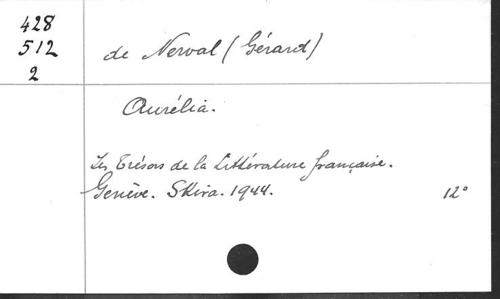 428
512
2
de Nerval (Gérard)
Aurélia.
Les Trésors de la Littérature française.
Genève. Skira. 1944. 12°